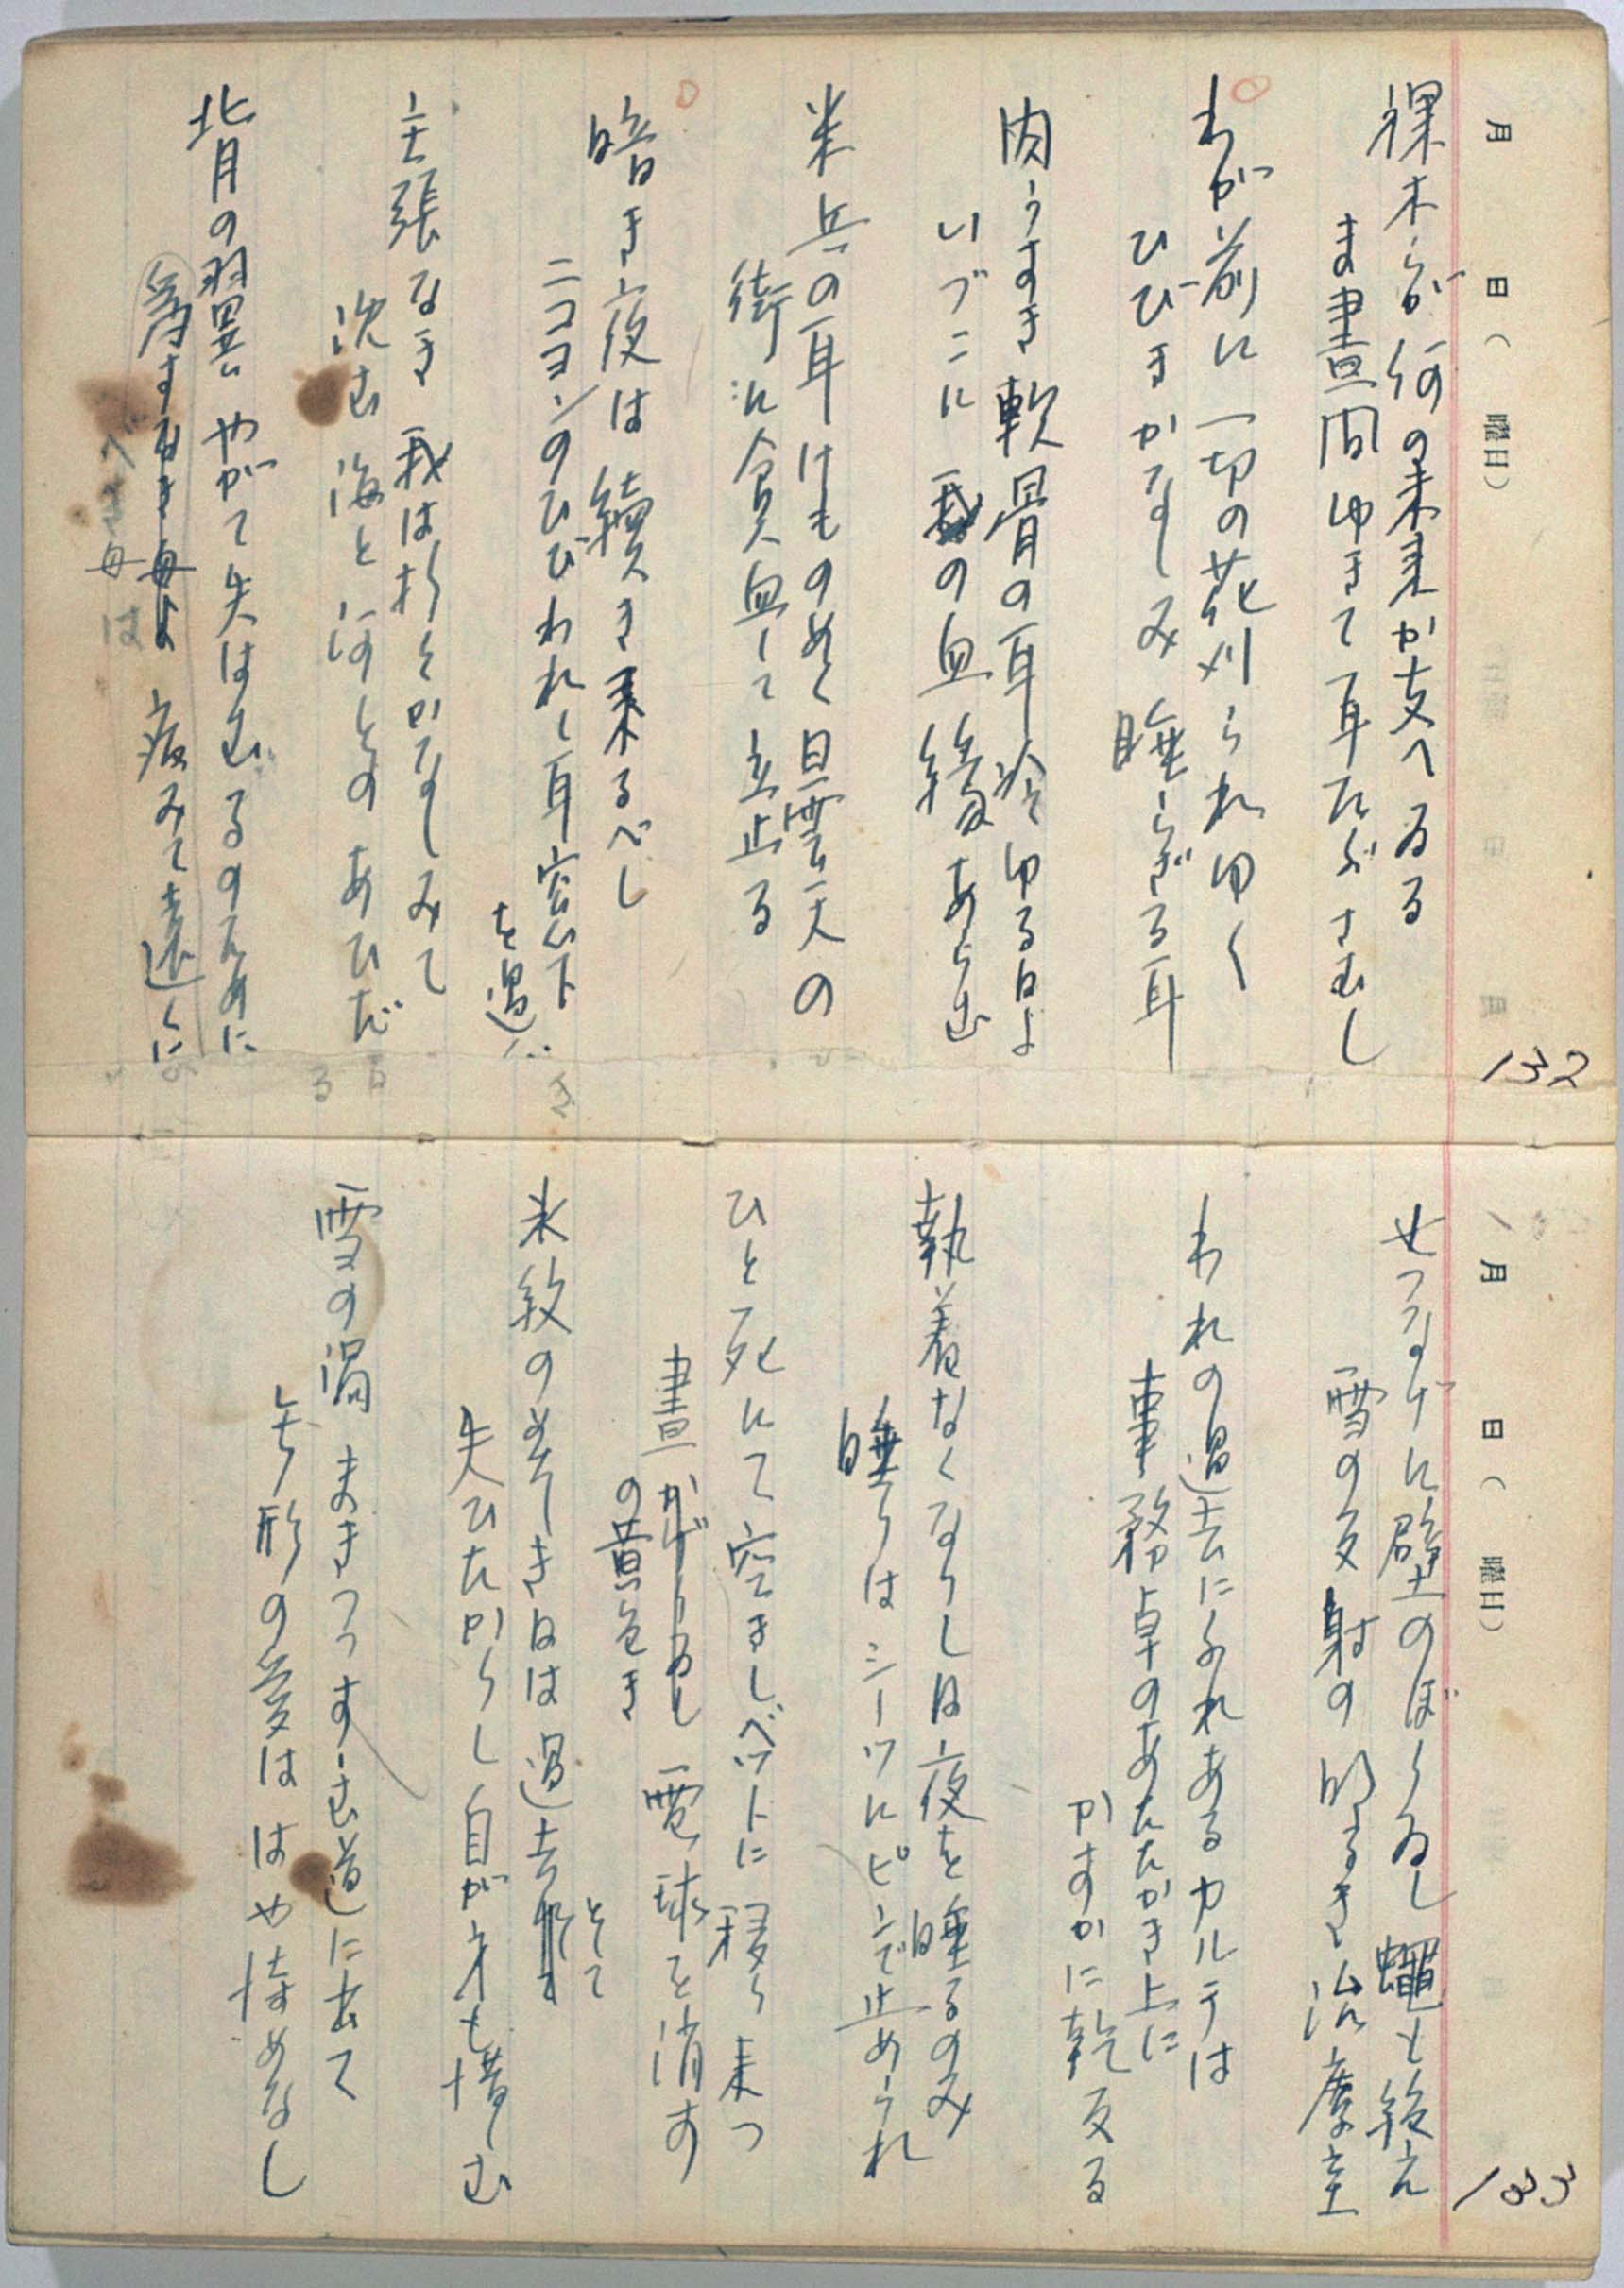 月 日( 曜日)
132
裸木らが何の未来か支へゐる
ま晝間ゆきて耳たぶさむし
わが前に一切の花刈られゆく
ひびきかなしみ睡らざる耳
肉うすき軟骨の耳冷ゆる日よ
いづこに我の血縁あらむ
米兵の耳けものめく曇天の
街に貧血して立止る
暗き夜は續き来るべし
ニコヨンのひびわれし耳窓下
を過ぐ
主張なき我は折々かなしみて
沈む海と河とのあひだ
背の翼やがて失はむるのために
病みて遠くに
べき母は
月 日( 曜日)
133
せつなげに壁のぼりゐし蠅も絶え
雪の反射の明るき治療室
われの過去にふれあるカルテは
事務卓のあたたかき上に
かすかに乾反る
執着なくなりし日夜を睡るのみ
睡りはシーツにピンで止められ
ひと死にて空きしベットに移り来つ
晝 電球を消す
の黄色き
氷紋の美しき日は過去
とて
失ひたからし自が才も惜しむ
雪の渦まきつつすゝむ道に出て
無形の愛ははや恃めなし